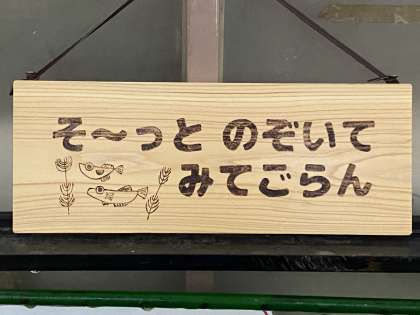 そ〜っと のぞいて
みてごらん